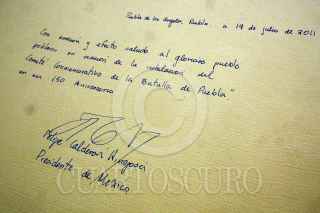 Puebla de los Angeles, Puebla. a 19 de julio de 2011
Con emoción y afecto saludo al glorioso pueblo
poblano en ocasión de la instalación del
Comité Conmemorativo de la Batalla de Puebla"
en su 150 Aniversario
Felipe Calderón Hinojosa
Presidente de México
©
CUARTOSCURO